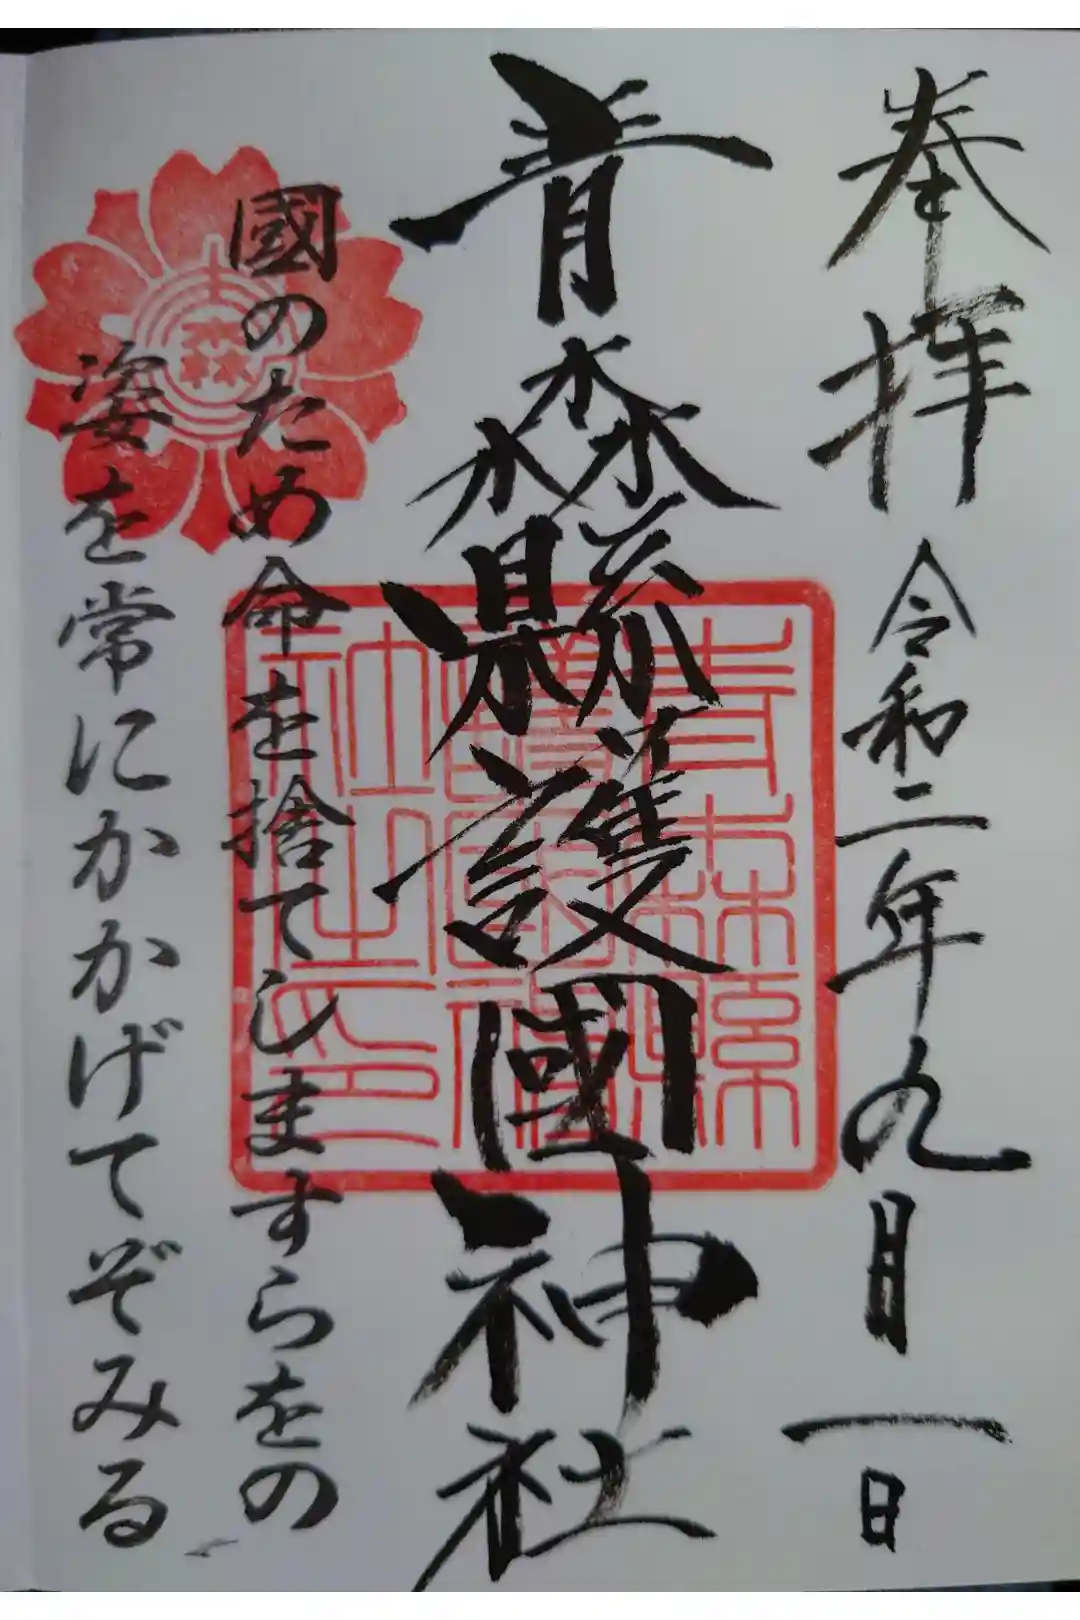 奉拝 令和二年九月一日
青森縣護國神社
國のため命を捨てしますらをの
姿を常にかかげてぞみる
青森縣護國神社之印